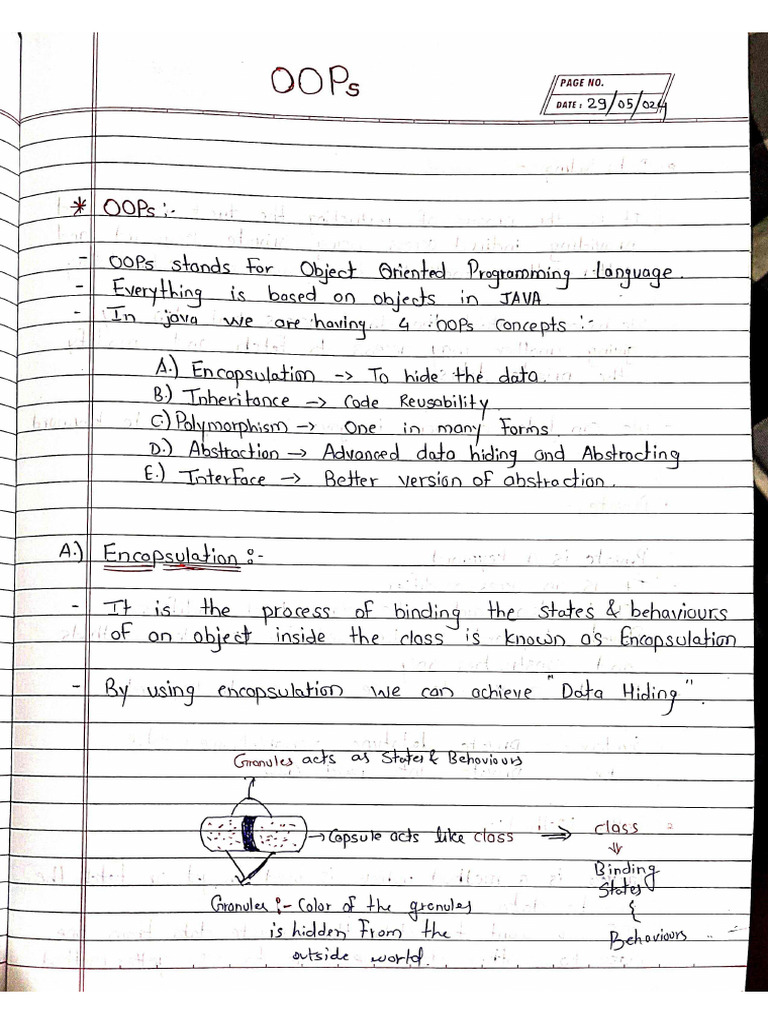 OOPs
PAGE NO.
DATE: 29/05/024
* OOPs :-
- OOPs stands for Object Oriented Programming Language.
- Everything is based on objects in JAVA
- In java we are having 4 OOPs concepts :-
A.) Encapsulation -> To hide the data.
B.) Inheritance -> Code Reusability.
C.) Polymorphism -> One in many Forms.
D.) Abstraction -> Advanced data hiding and Abstracting
E.) Interface -> Better version of abstraction.
A.) Encapsulation :-
- It is the process of binding the states & behaviours
of an object inside the class is known as Encapsulation
- By using encapsulation we can achieve "Data Hiding".
Granules acts as States & Behaviours
→ Capsule acts like class ⇒ class
⇓
Binding
States
{
Behaviours
Granules :- Color of the granules
is hidden From the
outside world.